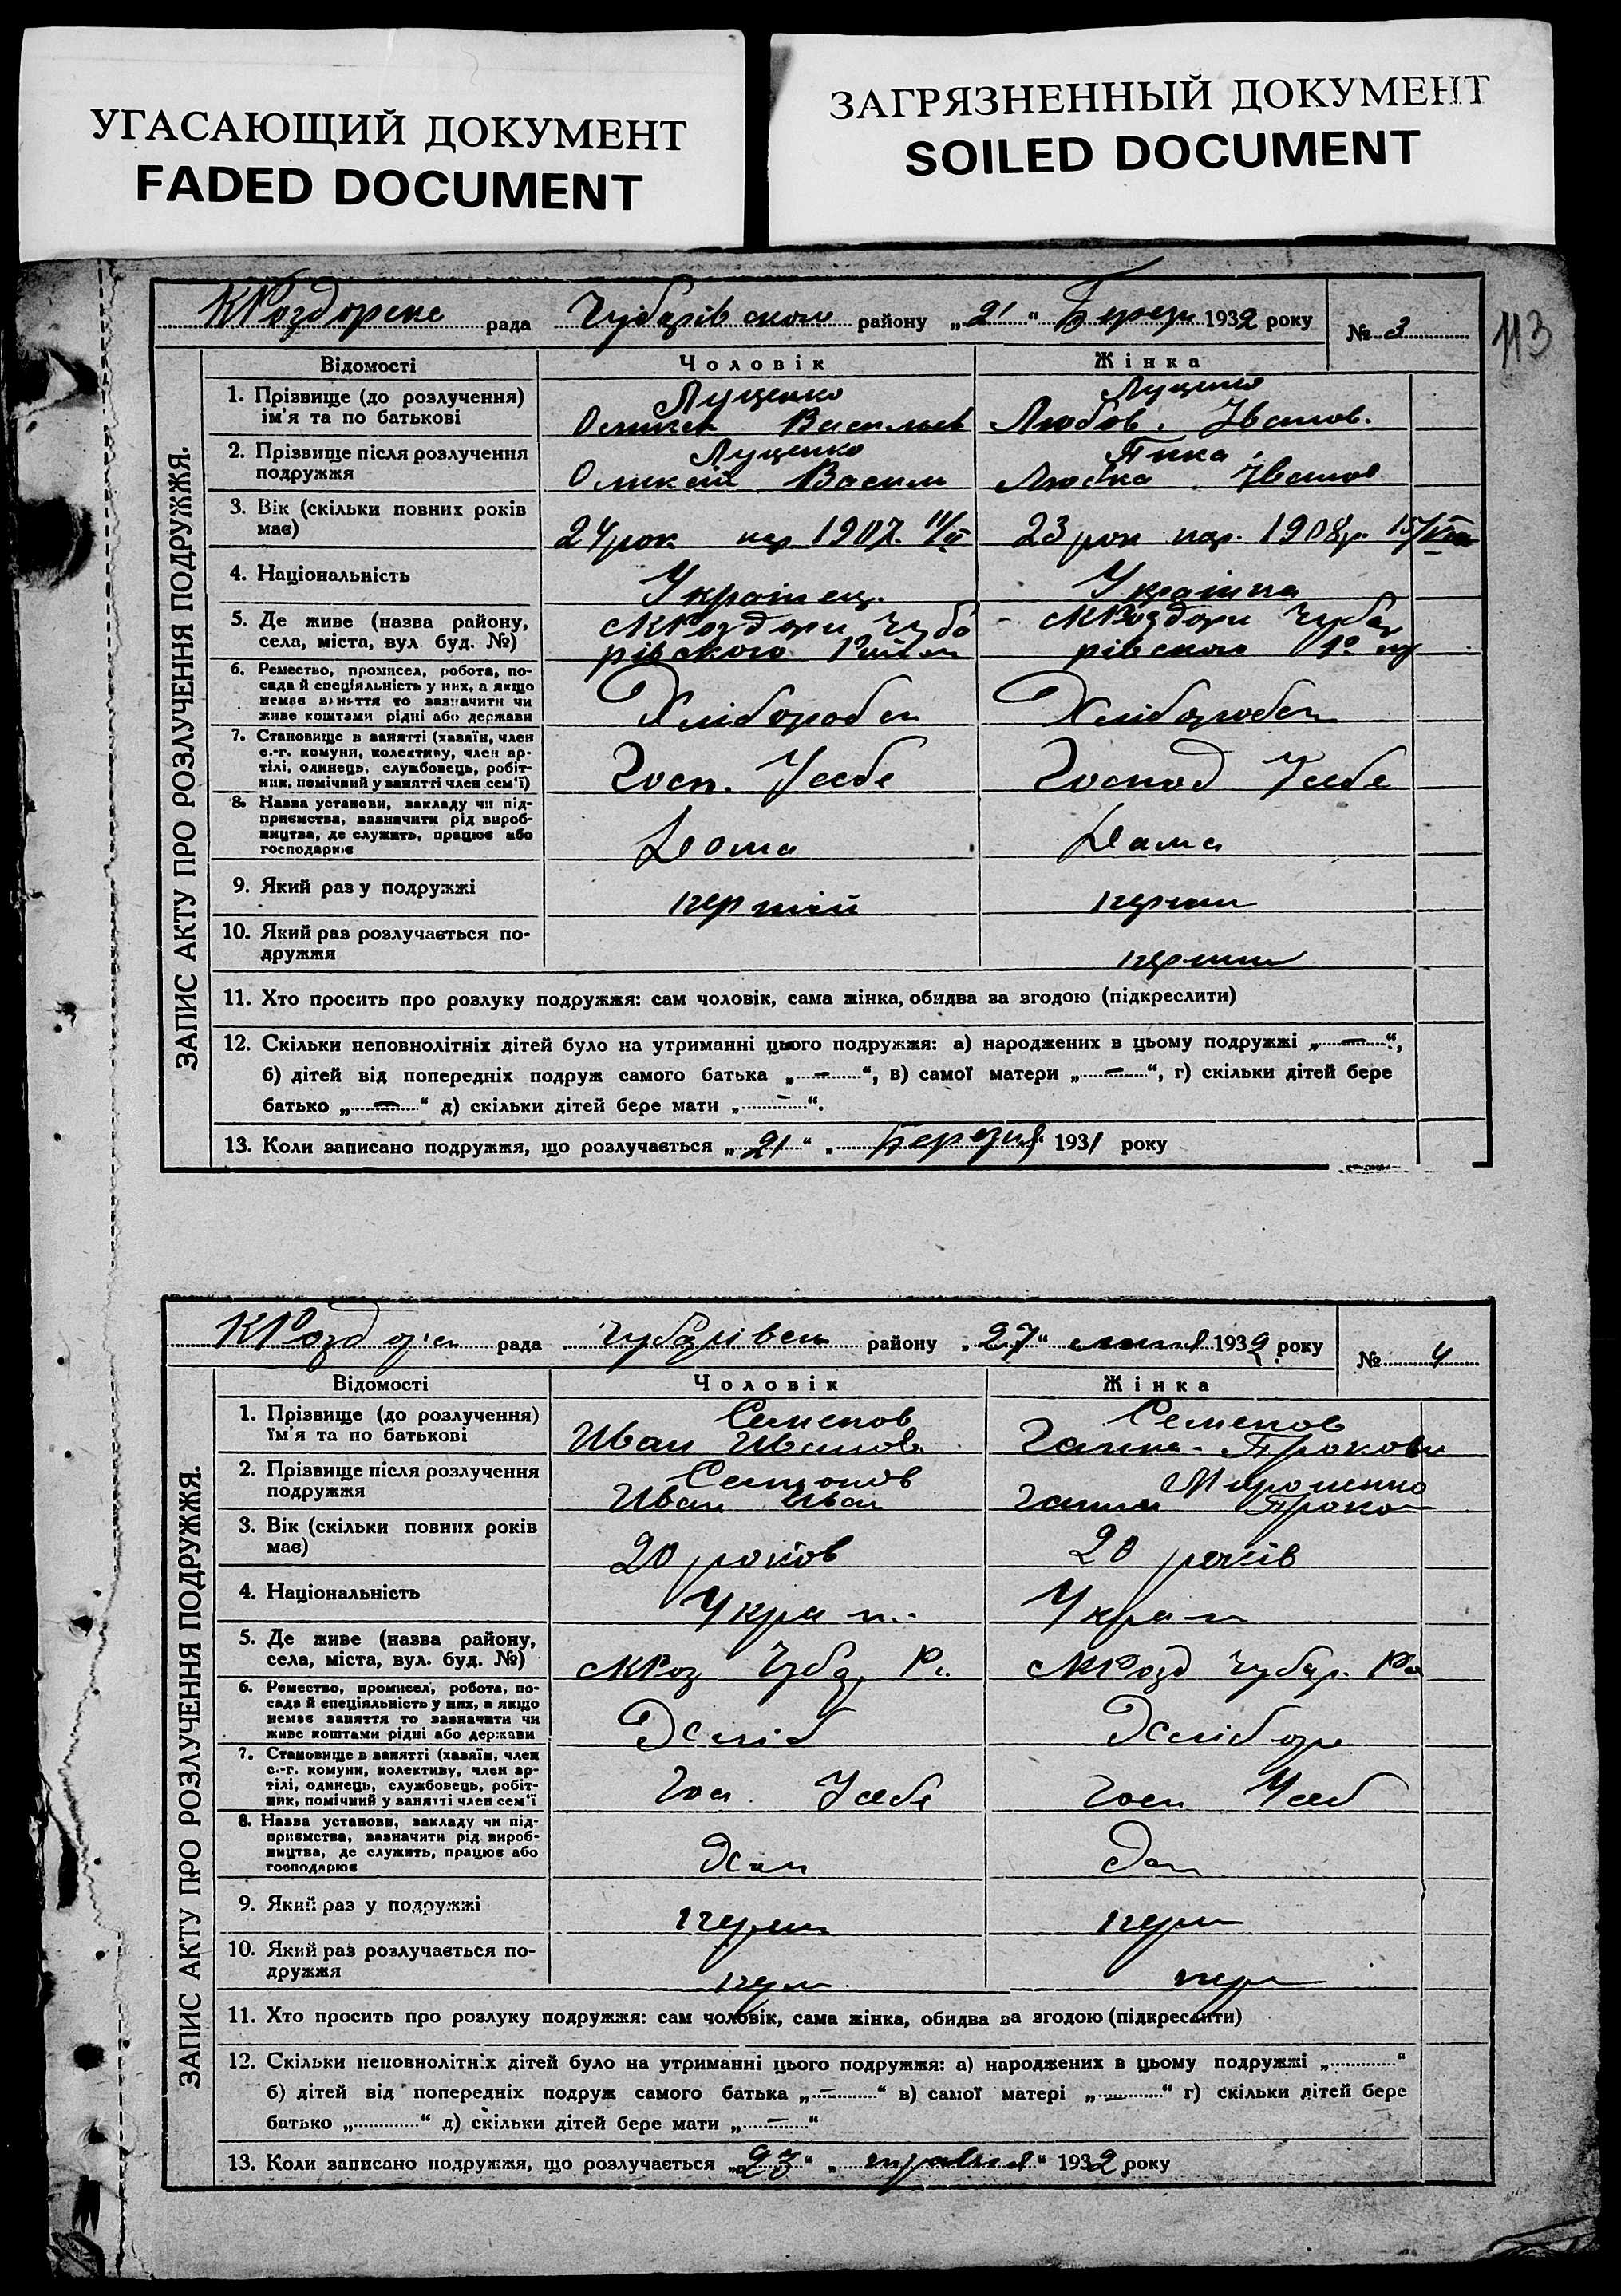 УГАСАЮЩИЙ ДОКУМЕНТ
FADED DOCUMENT
ЗАГРЯЗНЕННЫЙ ДОКУМЕНТ
SOILED DOCUMENT
113
рада Чубарівского району „21“ 1932 року № 3
ЗАПИС АКТУ ПРО РОЗЛУЧЕННЯ ПОДРУЖЖЯ.
Відомості Чоловік Жінка
1. Прізвище (до розлучення) Луценко Луценко
ім'я та по батькові Васильев Любов. Іванов.
2. Прізвище після розлучення Луценко
подружжя Оликсій Васил Любка Іванов
3. Вік (скільки повних років
має) 24 рок нар 1907. 23 рок нар. 1908 р.
4. Національність Українец. Українка
5. Де живе (назва району, МКРоздори Чуба МКРоздори Чубар
села, міста, вул буд. №) рівского рівского
6. Ремество, промисел, робота, по-
сада й спеціяльність у них, а якщо
немає заняття то зазначити чи
живе коштами рідні або держави Хлібороб Хлібороб
7. Становище в занятті (хазяїн, член
с.-г. комуни, колективу, член ар-
тілі, одинець, службовець, робіт- Госп. Усебе Господ Усебе
ник, помічний у занятті член сем'ї)
8. Назва установи, закладу чи під-
приємства, зазначити рід вироб-
ництва, де служить, працює або Дома Дома
господарює
9. Який раз у подружжі перший перши
10. Який раз розлучається по-
дружжя перши
11. Хто просить про розлуку подружжя: сам чоловік, сама жінка, обидва за згодою (підкреслити)
12. Скільки неповнолітніх дітей було на утриманні цього подружжя: а) народжених в цьому подружжі „—“,
б) дітей від попередніх подруж самого батька „—“, в) самої матери „—“, г) скільки дітей бере
батько „—“ д) скільки дітей бере мати „—“.
13. Коли записано подружжя, що розлучається „21“ „Березня“ 1931 року
рада району „27“ 1932 року № 4
ЗАПИС АКТУ ПРО РОЗЛУЧЕННЯ ПОДРУЖЖЯ.
Відомості Чоловік Жінка
1. Прізвище (до розлучення) Семенов Семенов
їм'я та по батькові Иван Иванов Ганна
2. Прізвище після розлучення Семонов Мироненко
подружжя Иван Иван Ганна Проко
3. Вік (скільки повних років
має) 20 років 20 років
4. Національність Укра Укра
5. Де живе (назва району,
села, міста, вул. буд. №) МКРоз Чуба Ра. МКРозд Чубар. Ра
6. Ремество, промисел, робота, по-
сада й спеціяльність у них, а якщо
немає заняття то зазначити чи
живе коштами рідні або держави Хліб Хлібор
7. Становище в занятті (хазяїн, член
с.-г. комуни, колективу, член ар-
тілі, одинець, службовець, робіт- Гос. Усебе Госп Усеб
ник, помічний у занятті член сем'ї
8. Назва установи, закладу чи під-
приємства, зазначити рід вироб-
ництва, де служить, працює або
господарює Дом
9. Який раз у подружжі перши перш
10. Який раз розлучається по-
дружжя перш перш
11. Хто просить про розлуку подружжя: сам чоловік, сама жінка, обидва за згодою (підкреслити)
12. Скільки неповнолітніх дітей було на утриманні цього подружжя: а) народжених в цьому подружжі „“
б) дітей від попередніх подруж самого батька „—“ в) самої матері „—“ г) скільки дітей бере
батько „“ д) скільки дітей бере мати „—“
13. Коли записано подружжя, що розлучається „23“ „травня“ 1932 року